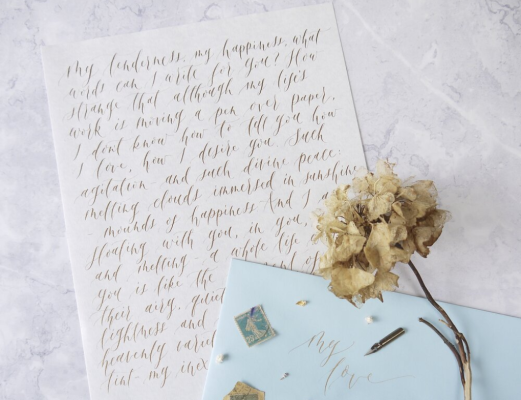 My tenderness, my happiness, what
words can I write for you? How
strange that although my life's
work is moving a pen over paper,
I don't know how to tell you how
I love, how I desire you. Such
agitation – and such divine peace:
melting clouds immersed in sunshine
– mounds of happiness. And I a
floating with you, in you,
and melting a whole life
you is like the of
their airy, quiet
lightness and
heavenly varie
tint – my inex
my
love